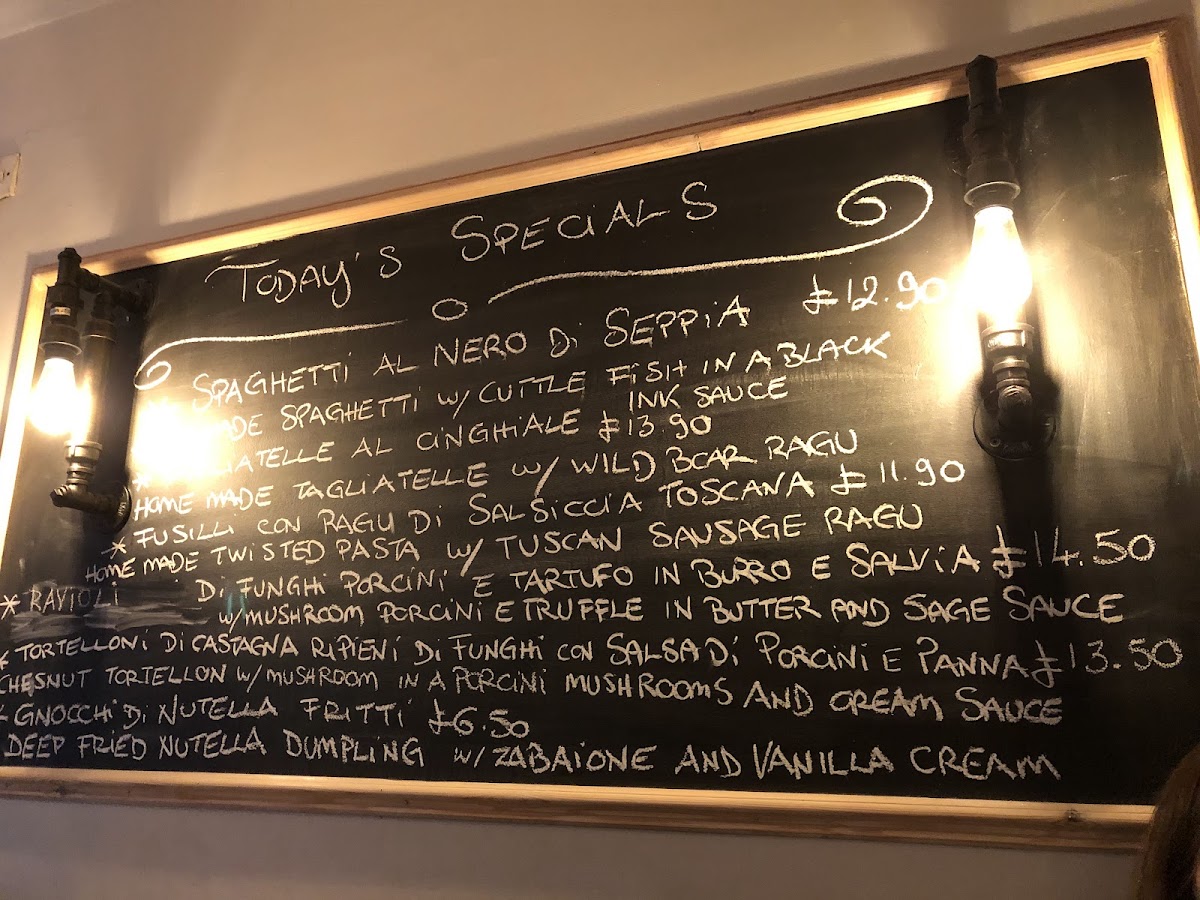 TODAY'S SPECIALS
SPAGHETTI AL NERO Di SEPPiA £12.90
MADE SPAGHETTi W/ CUTTLE FiSH IN A BLACK
INK SAUCE
AL CiNGHiALE £13.90
HOME MADE TAGLIATELLE W/ WILD BOAR RAGU
* FUSILLi CON RAGU Di SALSiCCiA TOSCANA £11.90
HOME MADE TWISTED PASTA W/ TUSCAN SAUSAGE RAGU
* RAVIOLI Di FUNGHi PORCiNi E TARTUFO IN BURRO E SALViA £14.50
W/ MUSHROOM PORCiNi E TRUFFLE IN BUTTER AND SAGE SAUCE
* TORTELLONi Di CASTAGNA RIPIENi Di FUNGHi CON SALSA Di PORCiNi E PANNA £13.50
CHESNUT TORTELLON W/ MUSHROOM IN A PORCiNi MUSHROOMS AND CREAM SAUCE
* GNOCCHi Di NUTELLA FRiTTi £6.50
DEEP FRIED NUTELLA DUMPLING W/ ZABAIONE AND VANILLA CREAM